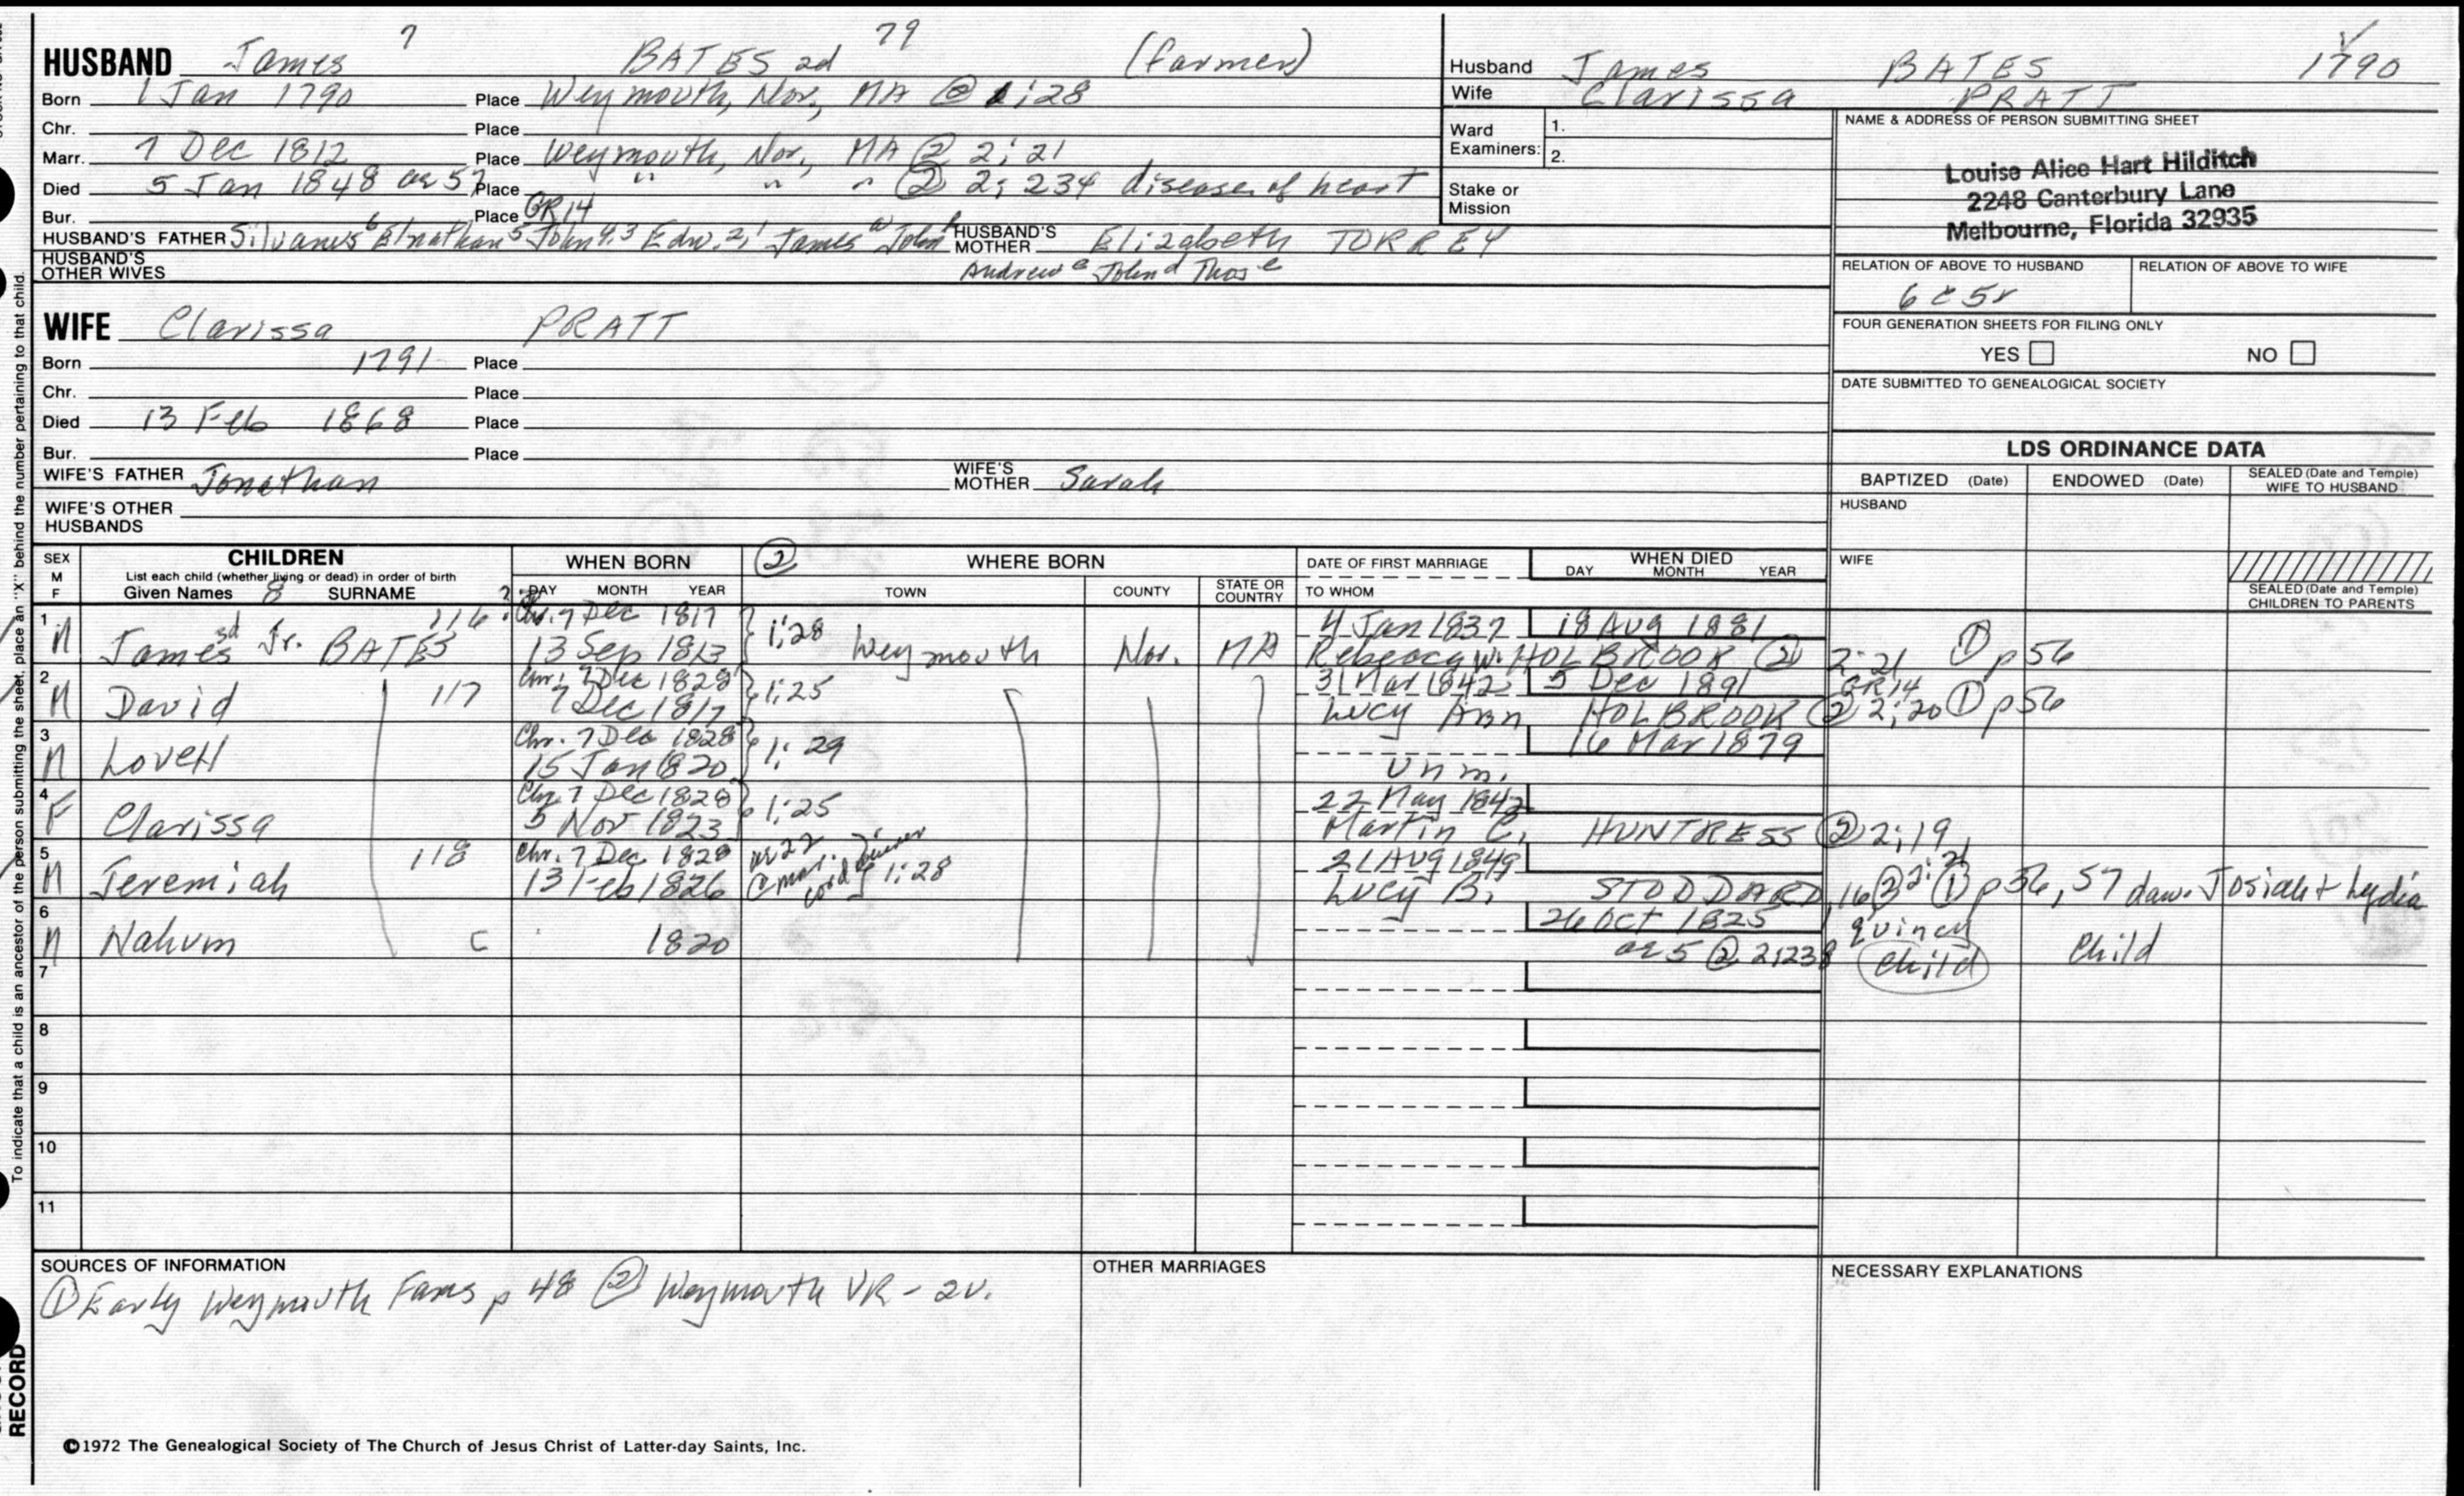 HUSBAND James 7 BATES 2d 79 (farmer)
Born 1 Jan 1790 Place Weymouth, Nor, MA @ 1:28
Chr. Place
Marr. 7 Dec 1812 Place Weymouth, Nor, MA ② 2:21
Died 5 Jan 1848 ae 57 Place " " " ② 2:234 disease of heart
Bur. Place GR14
HUSBAND'S FATHER Silvanus 6 Elnathan 5 John 4,3 Edw. 2,1 James a John b HUSBAND'S MOTHER Elizabeth TORREY
HUSBAND'S OTHER WIVES Andrew c John d Thos e
Husband James BATES 1790
Wife Clarissa PRATT
Ward Examiners: 1.
2.
Stake or Mission
NAME & ADDRESS OF PERSON SUBMITTING SHEET
Louise Alice Hart Hilditch
2248 Canterbury Lane
Melbourne, Florida 32935
RELATION OF ABOVE TO HUSBAND RELATION OF ABOVE TO WIFE
6 c 5r
FOUR GENERATION SHEETS FOR FILING ONLY
YES NO
DATE SUBMITTED TO GENEALOGICAL SOCIETY
WIFE Clarissa PRATT
Born 1791 Place
Chr. Place
Died 13 Feb 1868 Place
Bur. Place
WIFE'S FATHER Jonathan WIFE'S MOTHER Sarah
WIFE'S OTHER HUSBANDS
LDS ORDINANCE DATA
BAPTIZED (Date) ENDOWED (Date) SEALED (Date and Temple) WIFE TO HUSBAND
HUSBAND
WIFE
SEALED (Date and Temple) CHILDREN TO PARENTS
SEX M F CHILDREN WHEN BORN ② WHERE BORN DATE OF FIRST MARRIAGE WHEN DIED
List each child (whether living or dead) in order of birth
Given Names 8 SURNAME DAY MONTH YEAR TOWN COUNTY STATE OR COUNTRY TO WHOM DAY MONTH YEAR
1 116 Chr. 7 Dec 1817 4 Jan 1837 18 Aug 1881
M James 3d Jr. BATES 13 Sep 1813 1:28 Weymouth Nor. MA Rebecca W. HOLBROOK ② 2:21 ① p 56
2 117 Chr. 7 Dec 1828 31 Mar 1842 5 Dec 1891 GR14
M David 7 Dec 1817 1:25 Lucy Ann HOLBROOK ② 2:20 ① p 56
3 Chr. 7 Dec 1828 16 Mar 1879
M Lovell 15 Jan 1820 1:29 Unm.
4 Chr. 7 Dec 1828 22 May 1842
F Clarissa 5 Nov 1823 1:25 Martin C. HUNTRESS ② 2:19
5 118 Chr. 7 Dec 1828 ae 22 @ mar. cordwainer 21 Aug 1849
M Jeremiah 13 Feb 1826 1:28 Lucy B. STODDARD, 16 ② 2:21 ① p 56, 57 dau. Josiah + Lydia
6 26 Oct 1825 Quincy
M Nahum C 1820 ae 5 @ 2:238 Child Child
7
8
9
10
11
SOURCES OF INFORMATION OTHER MARRIAGES NECESSARY EXPLANATIONS
① Early Weymouth Fams p 48 ② Weymouth VR - 2v.
©1972 The Genealogical Society of The Church of Jesus Christ of Latter-day Saints, Inc.
To indicate that a child is an ancestor of the person submitting the sheet, place an "X" behind the number pertaining to that child.
RECORD